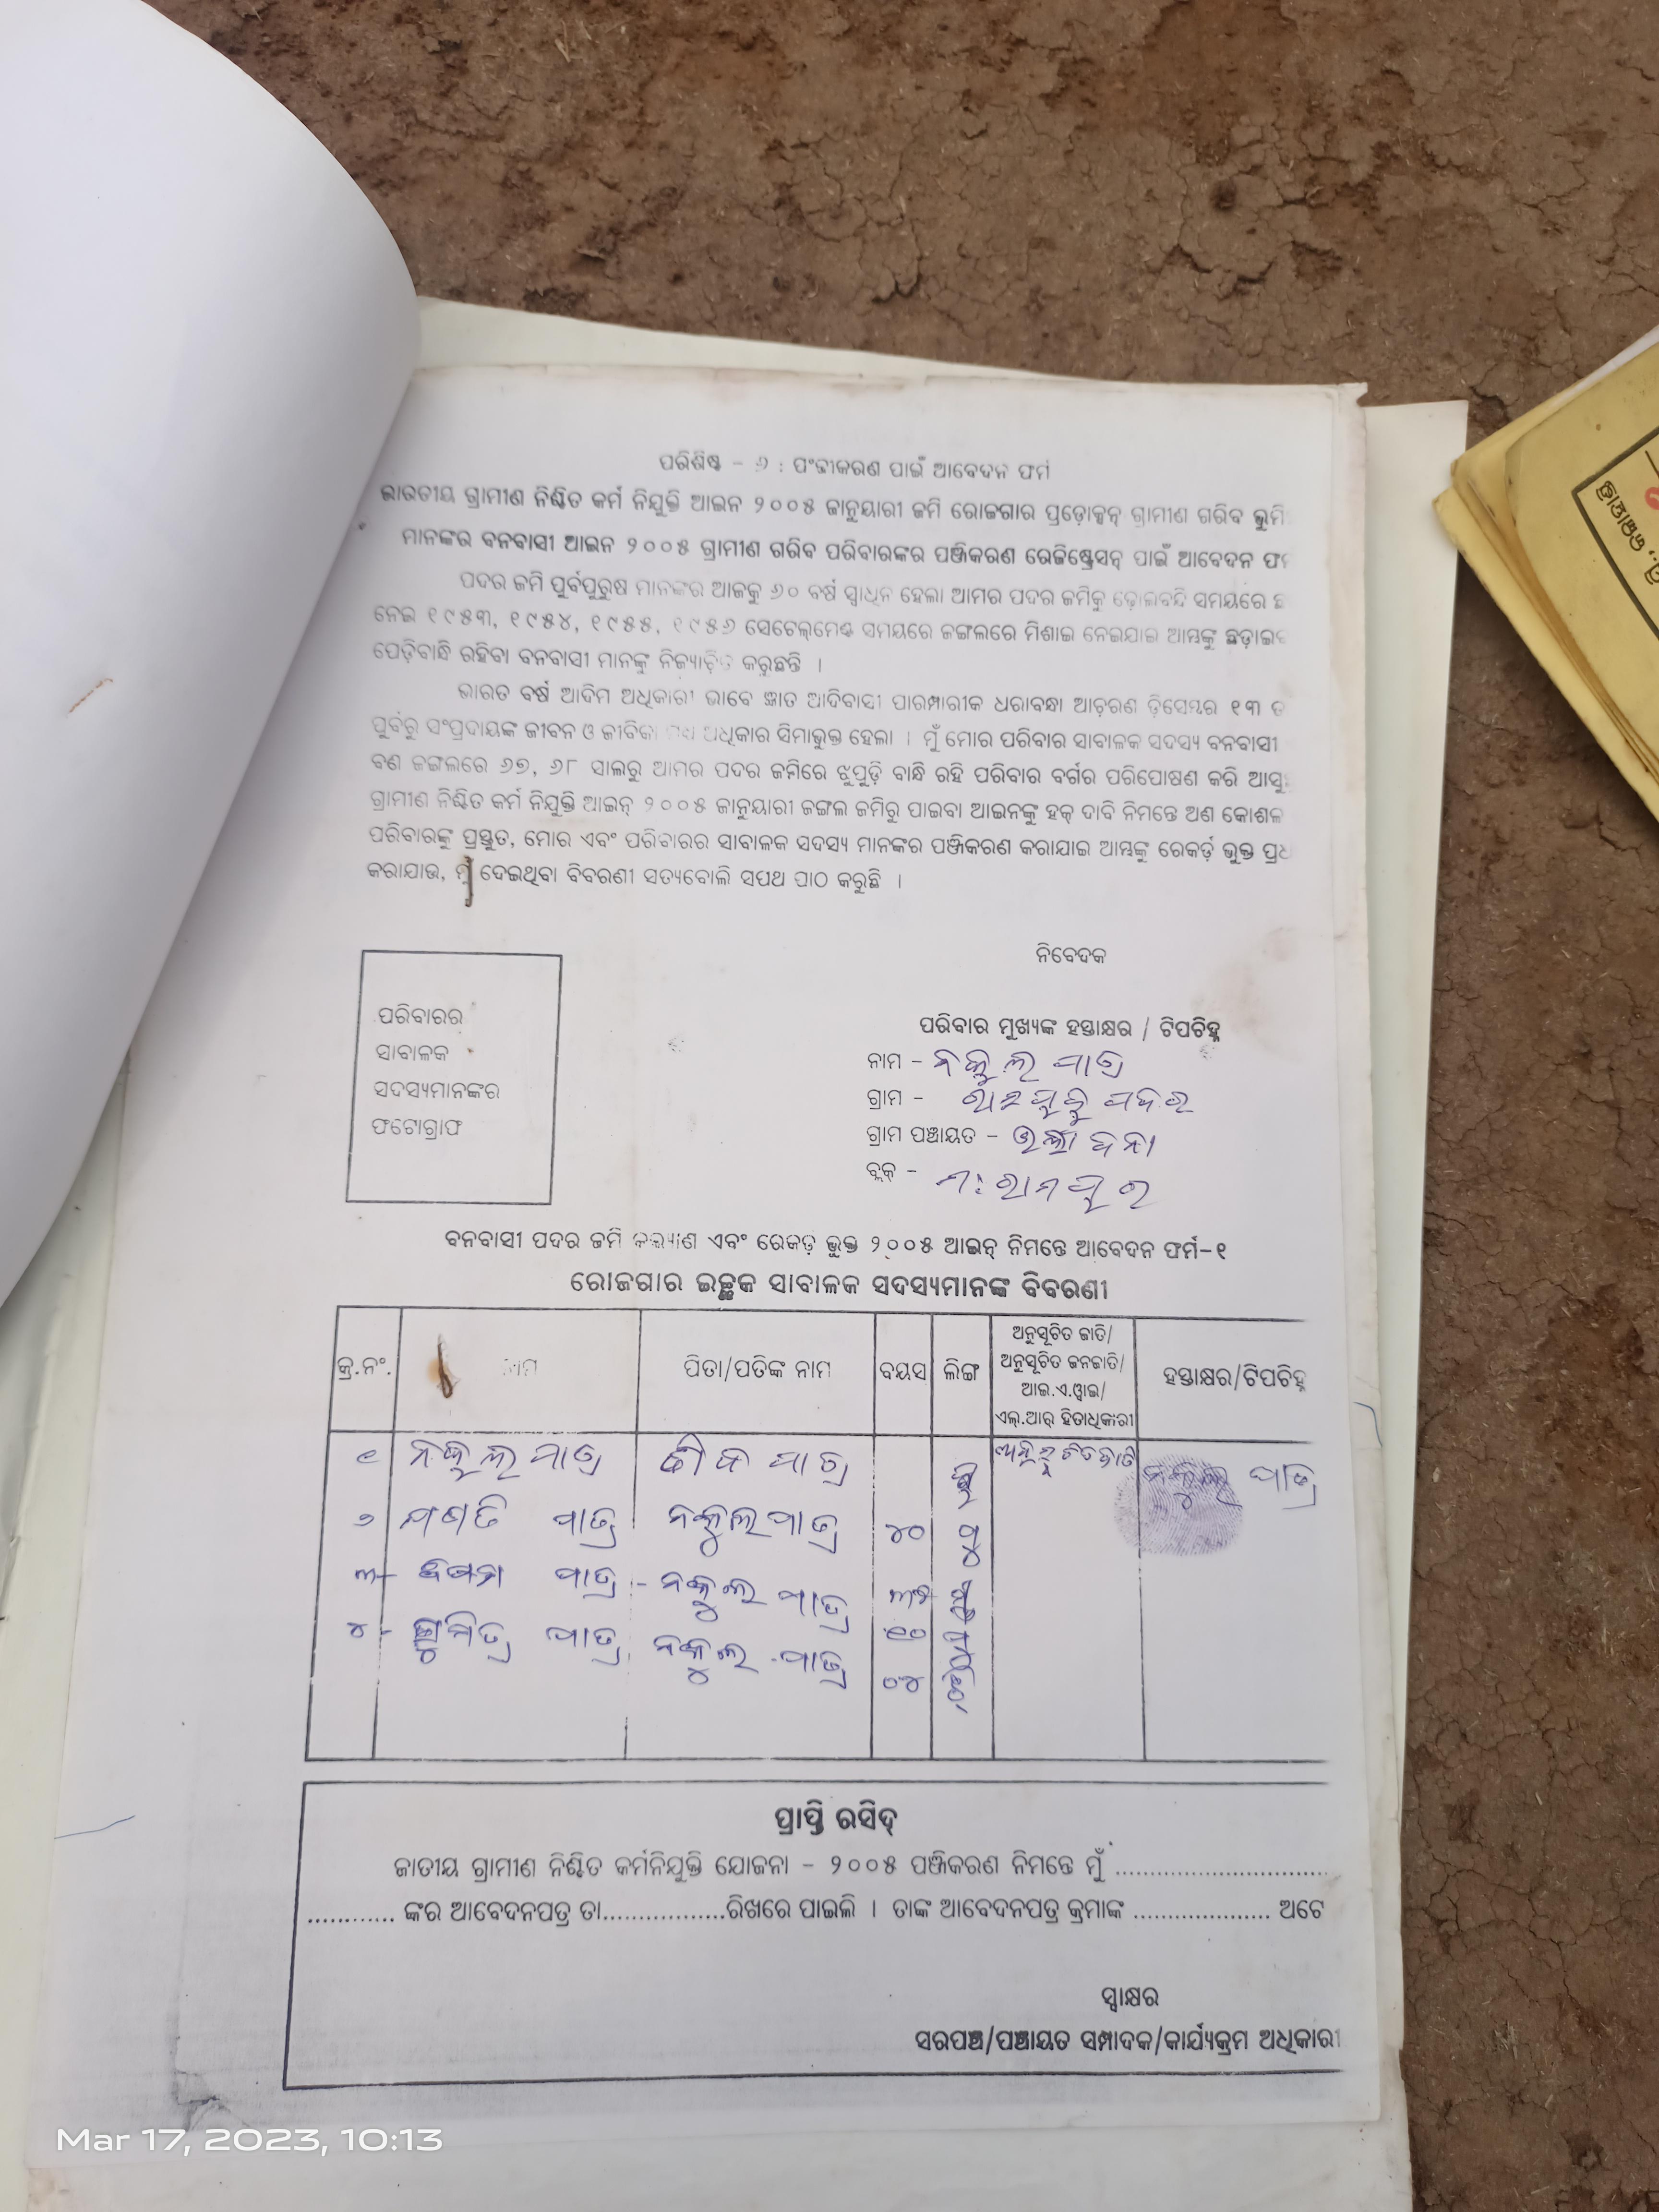 ପରିଶିଷ୍ଟ - ୬ : ପଂଜୀକରଣ ପାଇଁ ଆବେଦନ ଫର୍ମ
ଭାରତୀୟ ଗ୍ରାମୀଣ ନିଶ୍ଚିତ କର୍ମ ନିଯୁକ୍ତି ଆଇନ ୨୦୦୫ ଜାନୁୟାରୀ ଜମି ରୋଜଗାର ପ୍ରଡ଼ୋକ୍ସନ୍ ଗ୍ରାମୀଣ ଗରିବ ଭୂମି
ମାନଙ୍କର ବନବାସୀ ଆଇନ ୨୦୦୫ ଗ୍ରାମୀଣ ଗରିବ ପରିବାରଙ୍କର ପଞ୍ଜିକରଣ ରେଜିଷ୍ଟ୍ରେସନ୍ ପାଇଁ ଆବେଦନ ଫର୍ମ
ପଦର ଜମି ପୁର୍ବପୁରୁଷ ମାନଙ୍କର ଆଜକୁ ୬୦ ବର୍ଷ ସ୍ୱାଧିନ ହେଲା ଆମର ପଦର ଜମିକୁ ଢ଼ୋଲବନ୍ଦି ସମୟରେ
ନେଇ ୧୯୫୩, ୧୯୫୪, ୧୯୫୫, ୧୯୫୬ ସେଟେଲ୍‌ମେଣ୍ଟ ସମୟରେ ଜଙ୍ଗଲରେ ମିଶାଇ ନେଇଯାଇ ଆମ୍ଭଙ୍କୁ ଛଡ଼ାଇ
ପେଡ଼ିବାନ୍ଧି ରହିବା ବନବାସୀ ମାନଙ୍କୁ ନିର୍ଜ୍ୟାଚିତ କରୁଛନ୍ତି ।
ଭାରତ ବର୍ଷ ଆଦିମ ଅଧିକାରୀ ଭାବେ ଜ୍ଞାତ ଆଦିବାସୀ ପାରମ୍ପାରୀକ ଧରାବନ୍ଧା ଆଚରଣ ଡ଼ିସେମ୍ବର ୧୩
ପୁର୍ବରୁ ସଂପ୍ରଦାୟଙ୍କ ଜୀବନ ଓ ଜୀବିକା ଅଧିକାର ସିମାଭୁକ୍ତ ହେଲା । ମୁଁ ମୋର ପରିବାର ସାବାଳକ ସଦସ୍ୟ ବନବାସୀ
ବଣ ଜଙ୍ଗଲରେ ୬୭, ୬୮ ସାଲରୁ ଆମର ପଦର ଜମିରେ ଝୁପୁଡ଼ି ବାନ୍ଧି ରହି ପରିବାର ବର୍ଗର ପରିପୋଷଣ କରି ଆସୁ
ଗ୍ରାମୀଣ ନିଶ୍ଚିତ କର୍ମ ନିଯୁକ୍ତି ଆଇନ୍ ୨୦୦୫ ଜାନୁୟାରୀ ଜଙ୍ଗଲ ଜମିରୁ ପାଇବା ଆଇନଙ୍କୁ ହକ୍ ଦାବି ନିମନ୍ତେ ଅଣ କୋଶଳ
ପରିବାରଙ୍କୁ ପ୍ରସ୍ତୁତ, ମୋର ଏବଂ ପରିବାରର ସାବାଳକ ସଦସ୍ୟ ମାନଙ୍କର ପଞ୍ଜିକରଣ କରାଯାଇ ଆମ୍ଭଙ୍କୁ ରେକର୍ଡ଼ ଭୁକ୍ତ
କରାଯାଉ, ମୁଁ ଦେଇଥିବା ବିବରଣୀ ସତ୍ୟବୋଲି ସପଥ ପାଠ କରୁଛି ।
ନିବେଦକ
ପରିବାରର
ସାବାଳକ
ସଦସ୍ୟମାନଙ୍କର
ଫଟୋଗ୍ରାଫ
ପରିବାର ମୁଖ୍ୟଙ୍କ ହସ୍ତାକ୍ଷର / ଟିପଚିହ୍ନ
ନାମ - ନକୁଲ ପାତ୍ର
ଗ୍ରାମ -
ଗ୍ରାମ ପଞ୍ଚାୟତ -
ବ୍ଲକ୍ -
ବନବାସୀ ପଦର ଜମି କଲ୍ୟାଣ ଏବଂ ରେକଡ଼ ଭୁକ୍ତ ୨୦୦୫ ଆଇନ୍ ନିମନ୍ତେ ଆବେଦନ ଫର୍ମ-୧
ରୋଜଗାର ଇଚ୍ଛୁକ ସାବାଳକ ସଦସ୍ୟମାନଙ୍କ ବିବରଣୀ
କ୍ର.ନଂ. ନାମ ପିତା/ପତିଙ୍କ ନାମ ବୟସ ଲିଙ୍ଗ ଅନୁସୂଚିତ ଜାତି/ ଅନୁସୂଚିତ ଜନଜାତି/ ଆଇ.ଏ.ୱାଇ/ ଏଲ୍.ଆର୍ ହିତାଧିକାରୀ ହସ୍ତାକ୍ଷର/ଟିପଚିହ୍ନ
୧ ନକୁଲ ପାତ୍ର ପାତ୍ର ନକୁଲ ପାତ୍ର
୨ ପାତ୍ର ନକୁଲ ପାତ୍ର ୪୦ ପୁ
୩ ପାତ୍ର - ନକୁଲ ପାତ୍ର
୪ ପାତ୍ର ନକୁଲ ପାତ୍ର
ପ୍ରାପ୍ତି ରସିଦ୍
ଜାତୀୟ ଗ୍ରାମୀଣ ନିଶ୍ଚିତ କର୍ମନିଯୁକ୍ତି ଯୋଜନା - ୨୦୦୫ ପଞ୍ଜିକରଣ ନିମନ୍ତେ ମୁଁ ..............................
............ ଙ୍କର ଆବେଦନପତ୍ର ତା..................ରିଖରେ ପାଇଲି । ତାଙ୍କ ଆବେଦନପତ୍ର କ୍ରମାଙ୍କ .................... ଅଟେ
ସ୍ୱାକ୍ଷର
ସରପଞ୍ଚ/ପଞ୍ଚାୟତ ସମ୍ପାଦକ/କାର୍ଯ୍ୟକ୍ରମ ଅଧିକାରୀ
Mar 17, 2023, 10:13